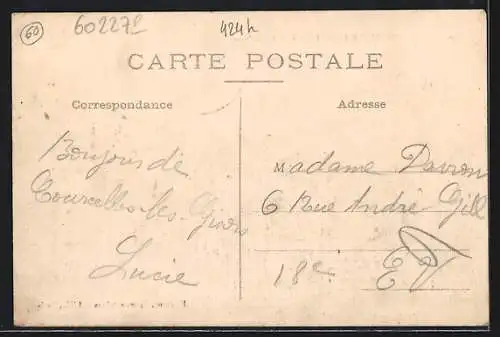 60
602272
424h
CARTE POSTALE
Correspondance
Adresse
Bonjour de
Courcelles-les-Gisors
Lucie
Madame
6 Rue André Gill
18e
E.V.